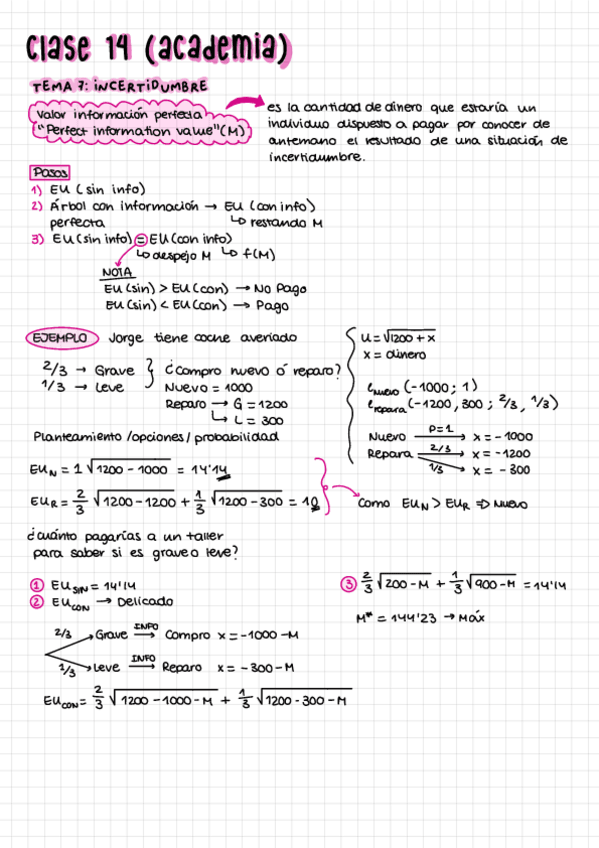 Clase 14 (academia)
TEMA 7: INCERTIDUMBRE
Valor información perfecta
"Perfect information value" (M)
es la cantidad de dinero que estaría un
individuo dispuesto a pagar por conocer de
antemano el resultado de una situación de
incertidumbre.
Pasos
1) EU (sin info)
2) Árbol con información → EU (con info)
perfecta ↳ restando M
3) EU(sin info) = EU(con info)
↳ despejo M ↳ f(M)
NOTA
EU(sin) > EU(con) → No Pago
EU(sin) < EU(con) → Pago
EJEMPLO Jorge tiene coche averiado
2/3 → Grave
1/3 → Leve
¿compro nuevo ó reparo?
Nuevo = 1000
Reparo → G = 1200
↳ L = 300
Planteamiento /opciones/ probabilidad
U = √1200 + x
x = dinero
L nuevo (-1000; 1)
L repara (-1200, 300 ; 2/3, 1/3)
Nuevo P=1 → x = -1000
Repara 2/3 → x = -1200
1/3 → x = -300
EU_N = 1 √1200 - 1000 = 14'14
EU_R = 2/3 √1200 - 1200 + 1/3 √1200 - 300 = 10
Como EU_N > EU_R ⇒ Nuevo
¿cuánto pagarías a un taller
para saber si es grave o leve?
1 EU_SIN = 14'14
2 EU_CON → Delicado
2/3 Grave INFO → Compro x = -1000 - M
1/3 Leve INFO → Reparo x = -300 - M
EU_CON = 2/3 √1200 - 1000 - M + 1/3 √1200 - 300 - M
3 2/3 √200 - M + 1/3 √900 - M = 14'14
M* = 144'23 → Máx